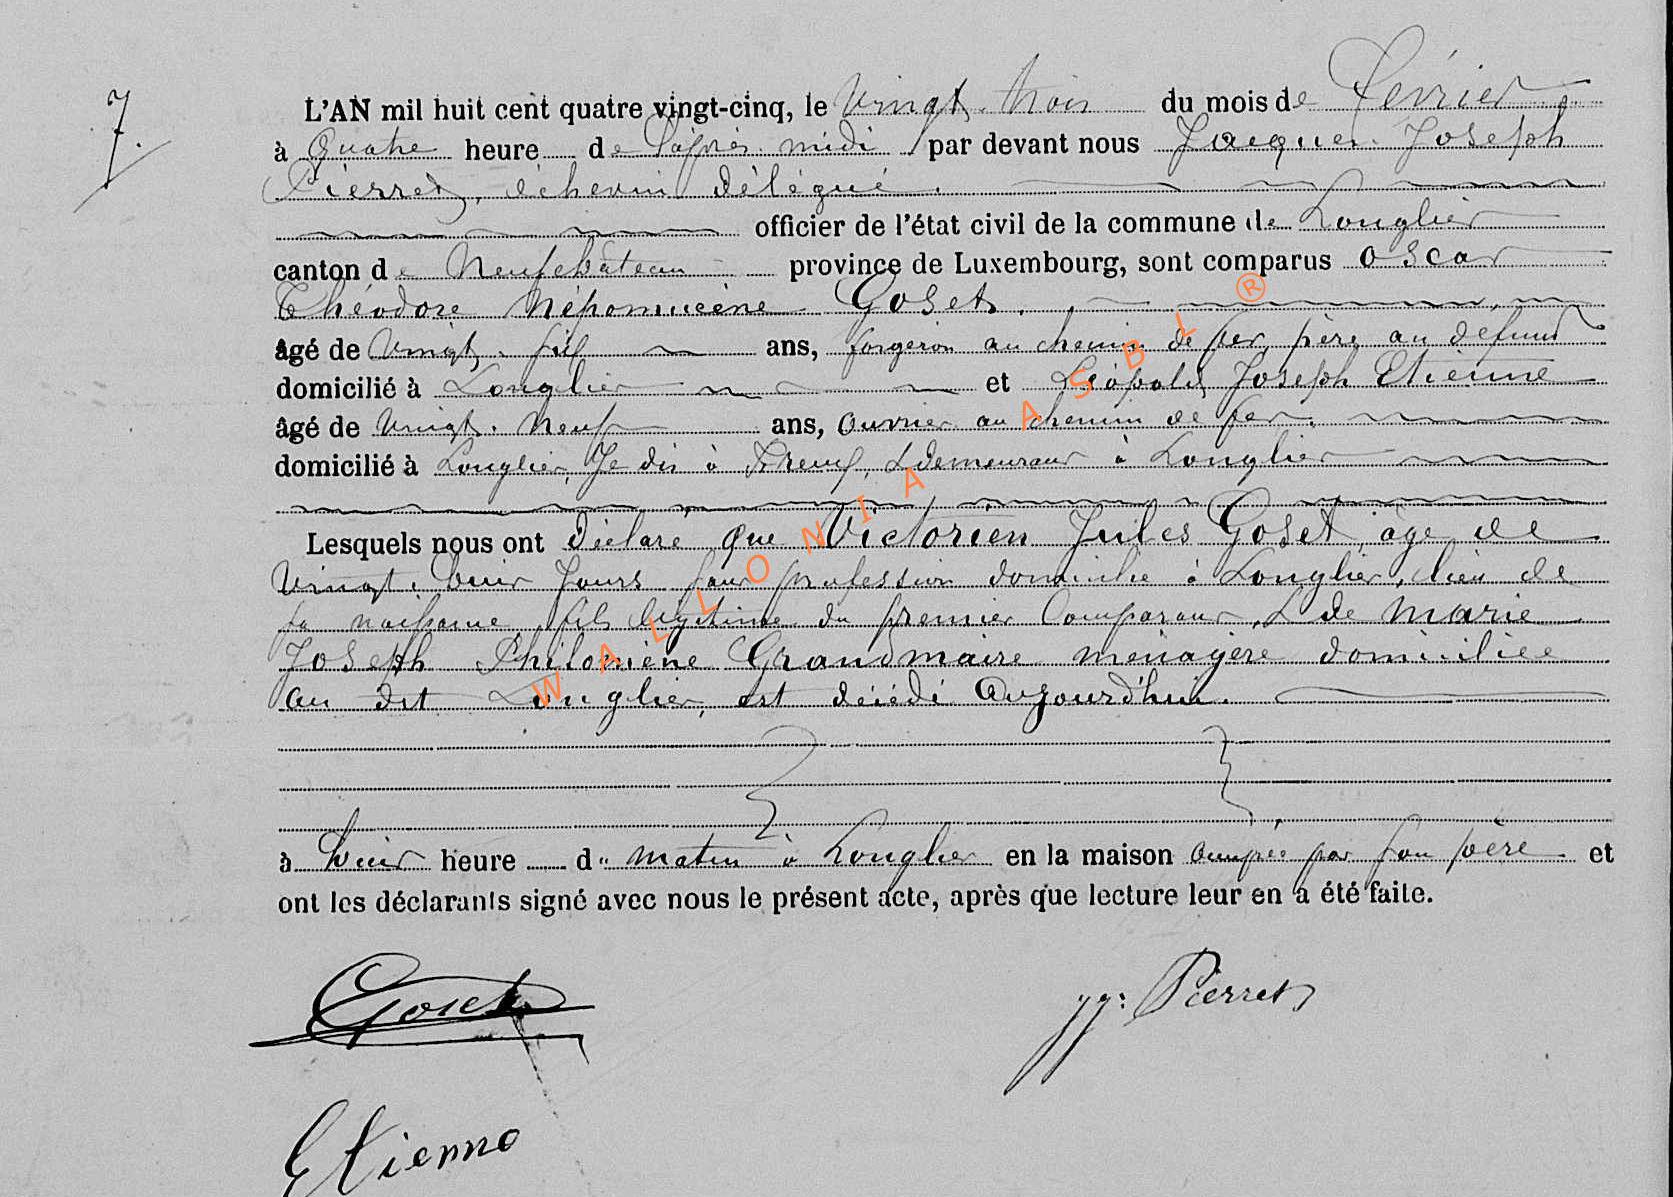 7.
L'AN mil huit cent quatre vingt-cinq, le Vingt-trois du mois de Février
à Quatre heure de l'après-midi par devant nous Jacques-Joseph
Pierret, échevin délégué.
officier de l'état civil de la commune de Longlier
canton de Neufchâteau province de Luxembourg, sont comparus Oscar
Théodore Népomucène Goset.
âgé de Vingt-six ans, forgeron au chemin de fer, père au défunt
domicilié à Longlier et Léopold Joseph Etienne
âgé de Vingt-Neuf ans, Ouvrier au chemin de fer,
domicilié à Longlier, Je dis à &demeurant à Longlier
Lesquels nous ont Déclaré que Victorien Jules Goset, âgé de
Vingt-huit Jours, sans profession domicilié à Longlier, lieu de
sa naissance, fils légitime du premier Comparant, & de Marie
Joseph Philomène Grandmaire ménagère domiciliée
au dit Longlier, est décédé Aujourd'hui.
à huit heure du matin à Longlier en la maison occupée par son père et
ont les déclarants signé avec nous le présent acte, après que lecture leur en a été faite.
Goset
jj: Pierret
Etienne
WALLONIA ASBL ®